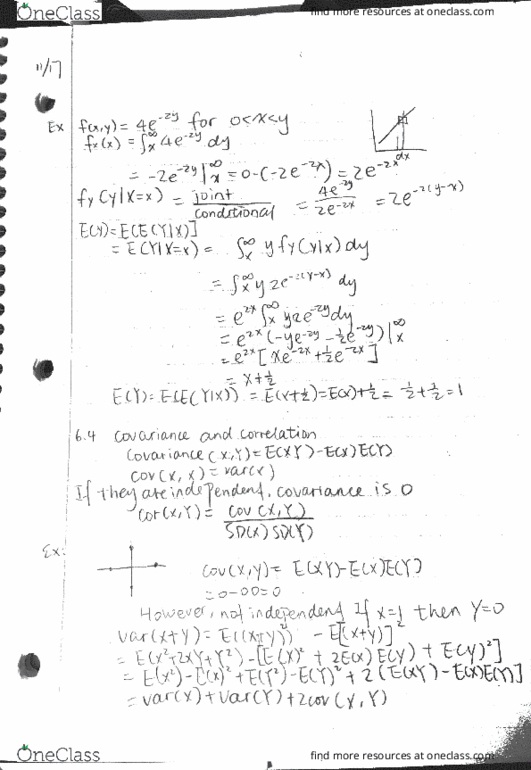 OneClass
find more resources at oneclass.com
11/17
Ex f(x,y) = 4e^-2y for 0<x<y
fx(x) = ∫x^∞ 4e^-2y dy
= -2e^-2y |x^∞ = 0-(-2e^-2x) = 2e^-2x
dx
fy(y|X=x) = joint/conditional = 4e^-2y/2e^-2x = 2e^-2(y-x)
E(y) = E[E(Y|X)]
= E(Y|X=x) = ∫x^∞ y fy(y|x) dy
= ∫x^∞ y 2e^-2(y-x) dy
= e^2x ∫x^∞ y2e^-2y dy
= e^2x (-ye^-2y - ½e^-2y)|x^∞
= e^2x [xe^-2x + ½e^-2x]
= x+½
E(Y) = E(E(Y|X)) = E(x+½) = E(x)+½ = ½+½ = 1
6.4 Covariance and correlation
Covariance(X,Y) = E(XY)-E(X)E(Y)
cov(X,X) = var(x)
If they are independent, covariance is 0
Cor(X,Y) = Cov(X,Y)/SD(X)SD(Y)
Ex:
Cov(X,Y) = E(XY)-E(X)E(Y)
= 0-0·0 = 0
However, not independent If x=1 then Y=0
Var(X+Y) = E((X+Y)²) - E[(X+Y)]²
= E(X²+2XY+Y²) - [E(X)² + 2E(X)E(Y) + E(Y)²]
= E(X²)-E(X)² + E(Y²)-E(Y)² + 2(E(XY)-E(X)E(Y)]
= var(x) + Var(Y) + 2cov(X,Y)
OneClass
find more resources at oneclass.com